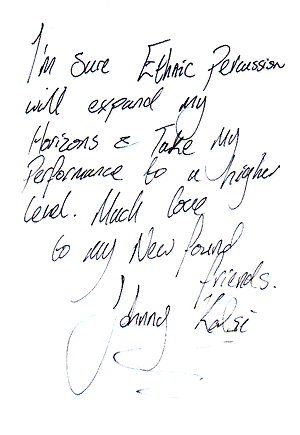 I'm Sure Ethnic Percussion
will expand my
Horizons & Take My
Performance to a higher
level. Much love
to my New found
friends.
Johnny Kalsi